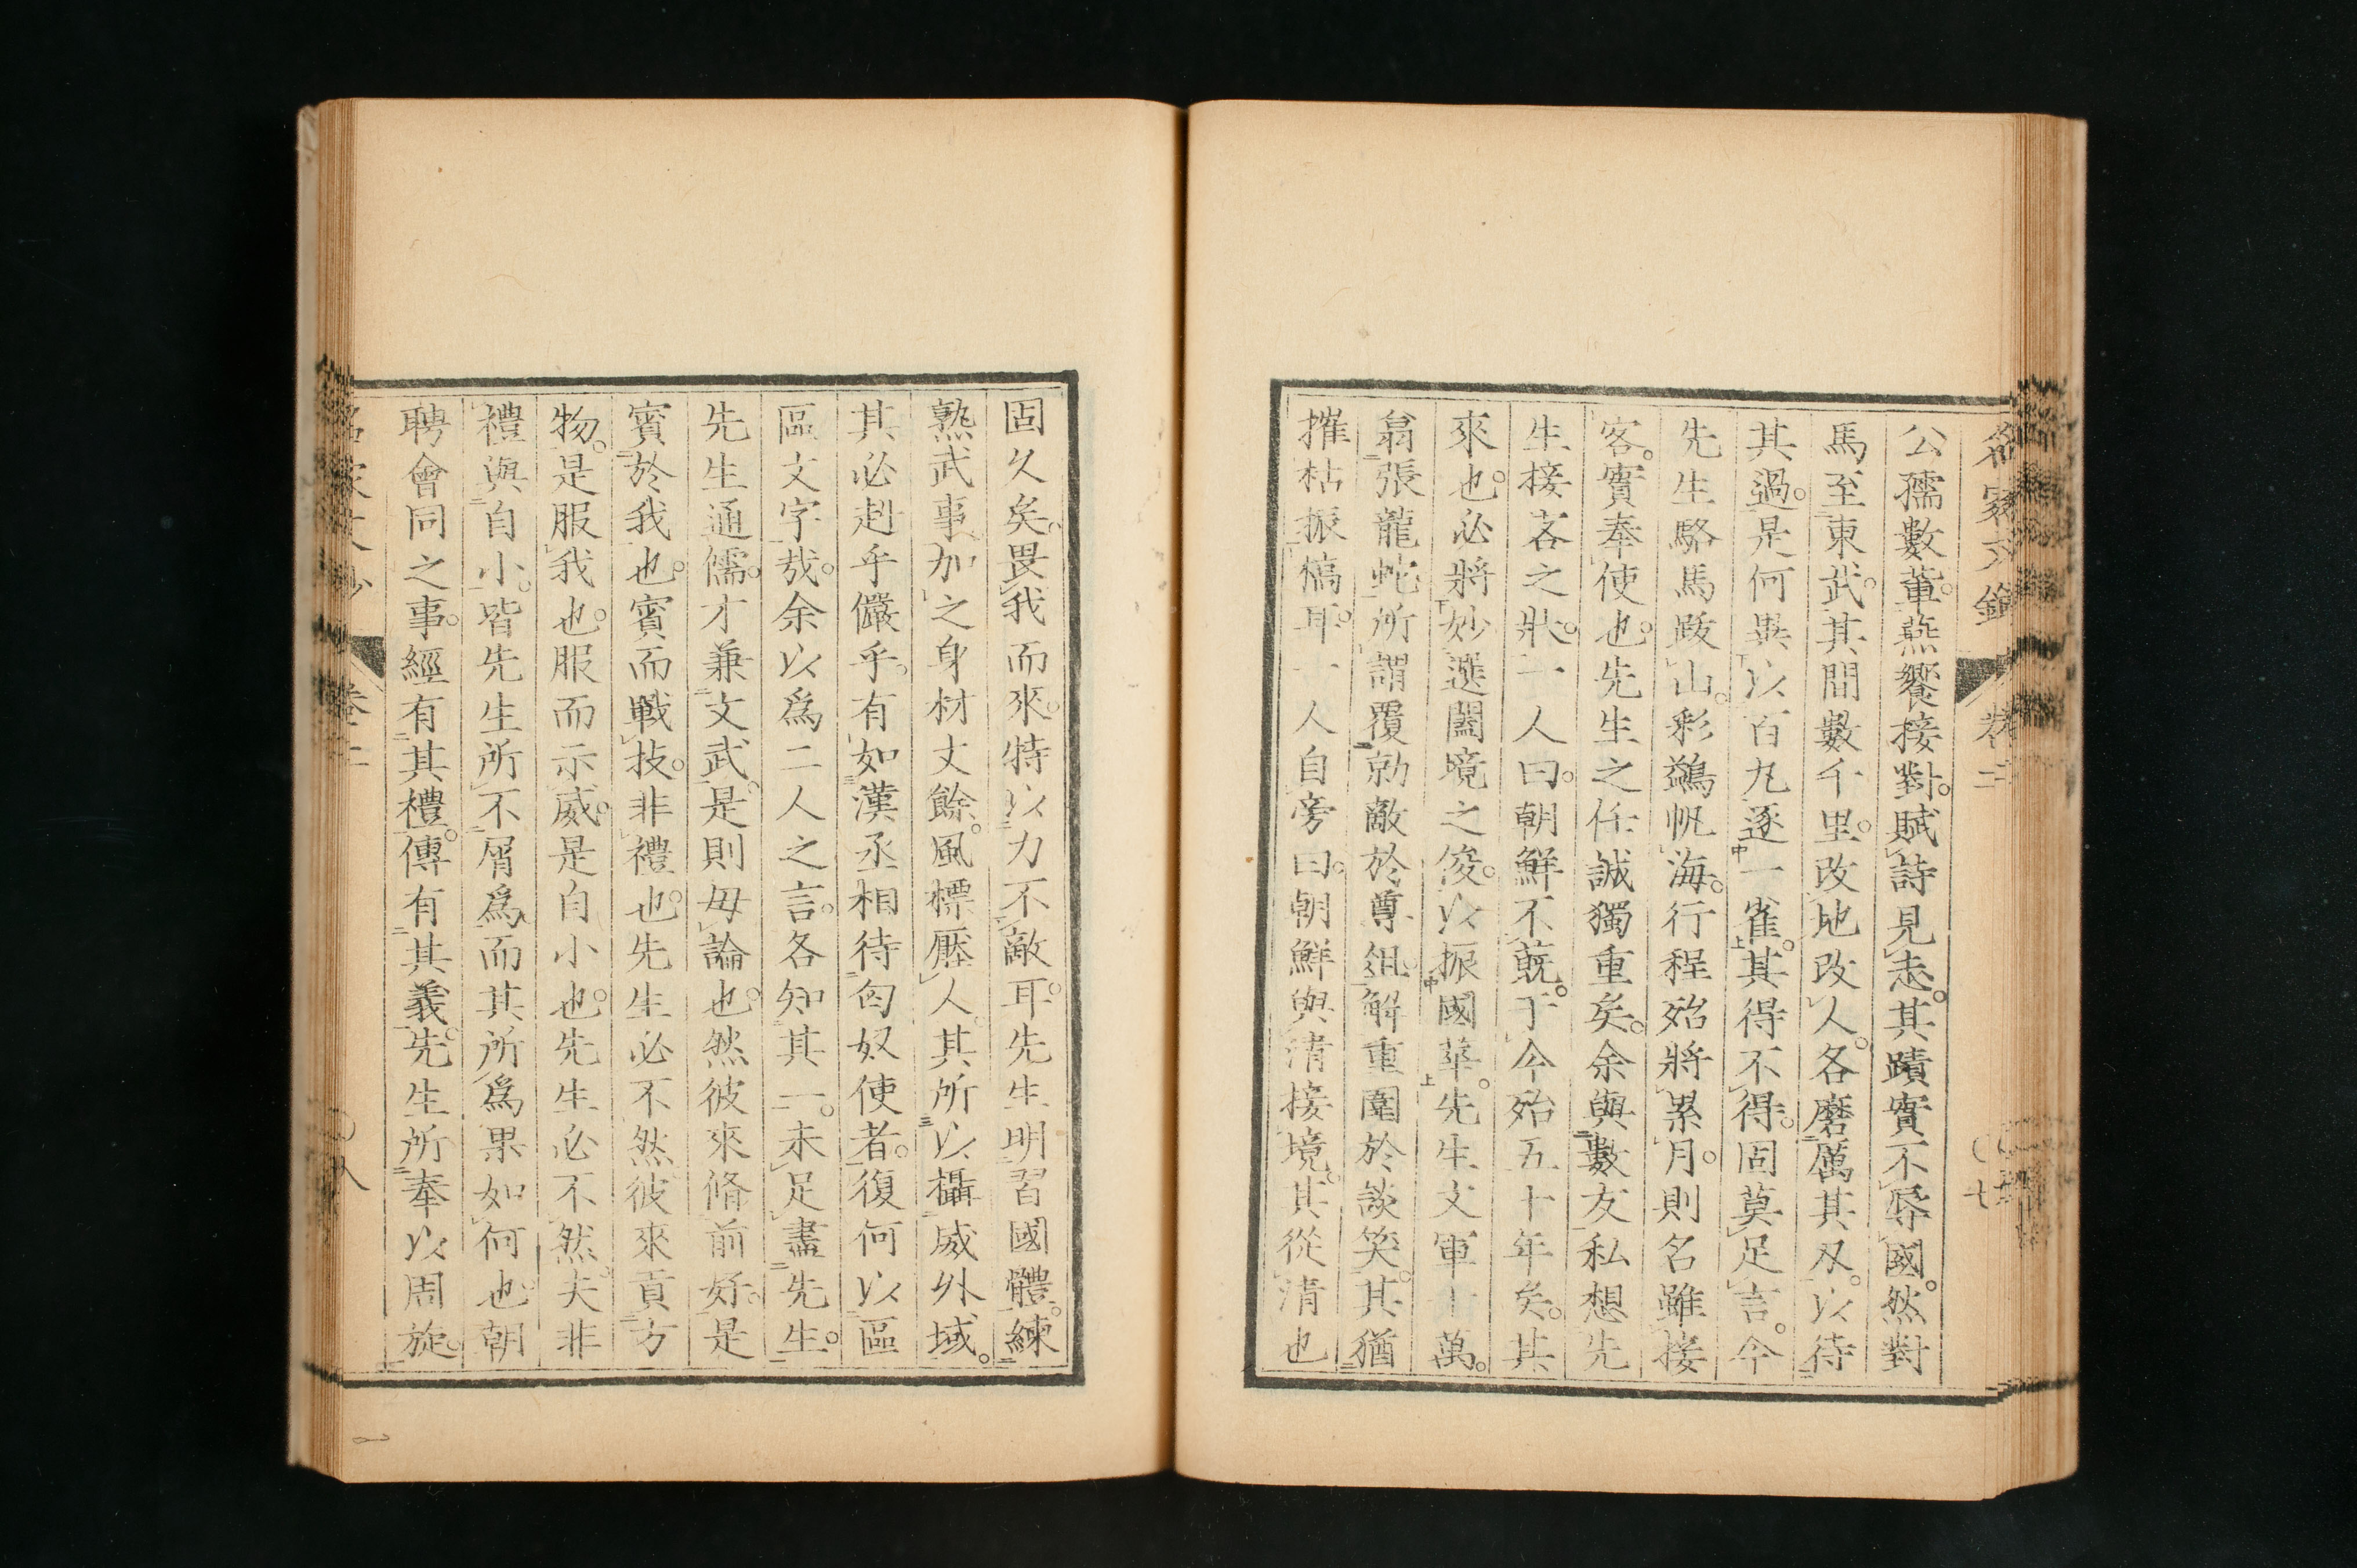 公孺數輩。燕饗接對。賦詩見志。其蹟實不辱國。然對
馬至東武。其間數千里。改地改人。各磨厲其刄。以待
其過。是何異以百九逐一雀。其得不得。固莫足言。今
先生駱馬跋山。彩鷁帆海。行程殆將累月。則名雖接
客。實奉使也。先生之任誠獨重矣。余與數友私想先
生接客之狀。一人曰。朝鮮不覿于今殆五十年矣。其
來也。必將妙選闔境之俊。以振國華。先生文軍十萬。
翕張龍蛇。所謂覆勍敵於尊俎。解重圍於談笑。其猶
摧枯振槁耳。一人自旁曰。朝鮮與清接境。其從清也
固久矣。畏我而來。特以力不敵耳。先生明習國體。練
熟武事。加之身材丈餘。風標壓人。其所以攝威外域。
其必赳乎儼乎。有如漢丞相待匈奴使者。復何以區
區文字哉。余以爲二人之言。各知其一。未足盡先生。
先生通儒。才兼文武。是則毋論也。然彼來脩前好。是
賓於我也。賓而戰技。非禮也。先生必不然。彼來貢方
物。是服我也。服而示威。是自小也。先生必不然。夫非
禮與自小。皆先生所不屑爲。而其所爲果如何也。朝
聘會同之事。經有其禮。傳有其義。先生所奉以周旋。